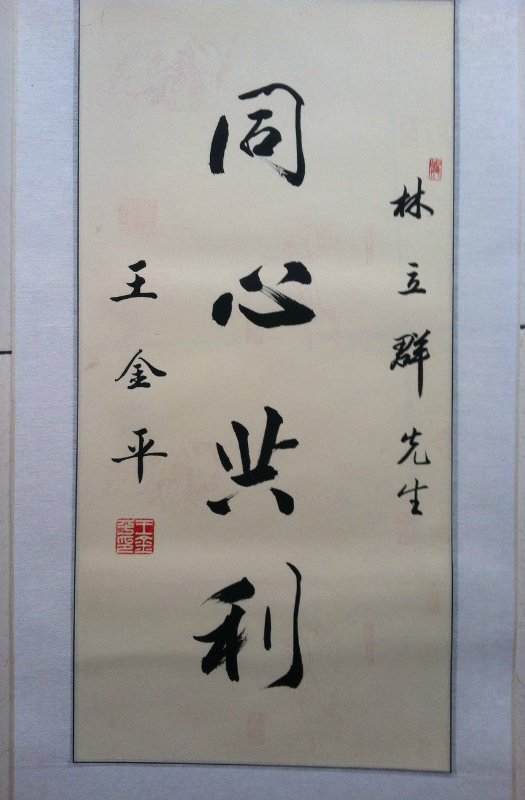 林立群先生
同心共利
王金平